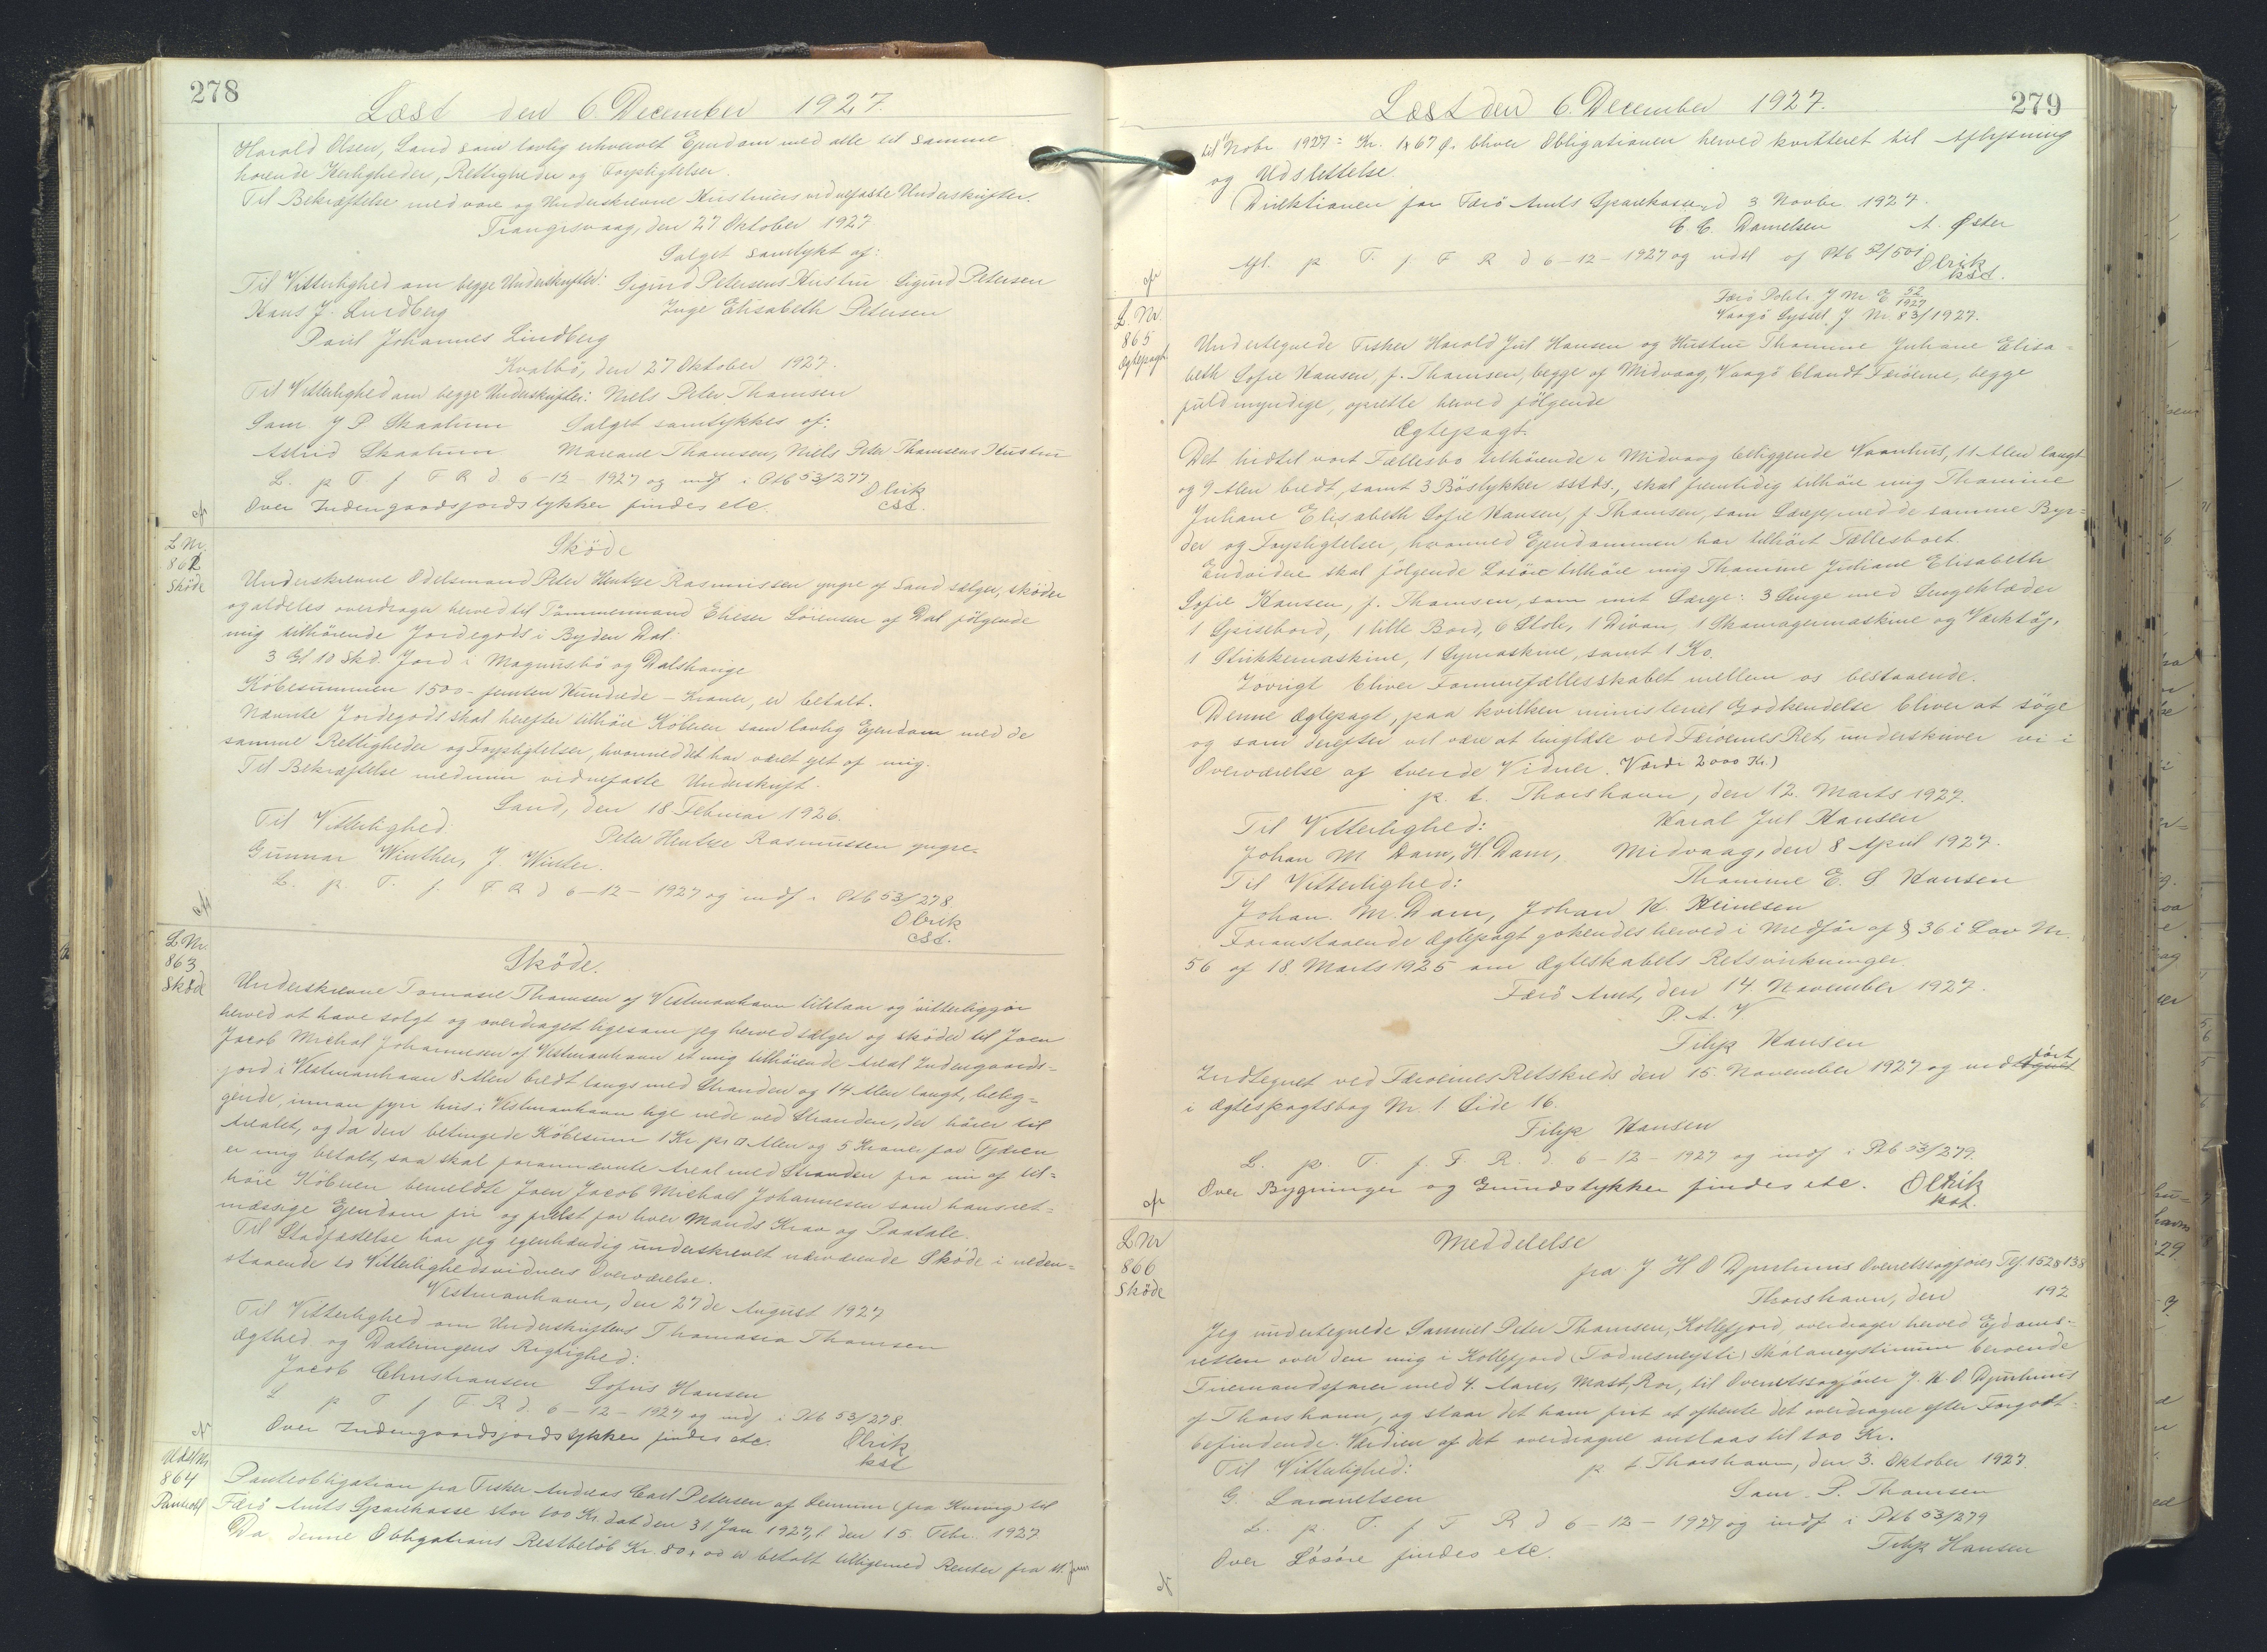 278
Læst den 6. December 1927.
Harold Olsen, Sand som lovlig erhvervet Ejendom med alle til samme
hørende Herligheder, Rettigheder og Forpligtelser.
Til Bekræftelse med vore og Underskrevne Hustruers vidnefaste Underskrifter.
Trangisvaag, den 27 Oktober 1927.
Salget samtykt af:
Til Vitterlighed om begge Underskrifter: Sigurd Petersens Hustru Sigurd Petersen
Hans J. Lindberg Inge Elisabeth Petersen
Poul Johannes Lindberg
Kvalbö, den 27 Oktober 1927.
Til Vitterlighed om begge Underskrifter: Niels Peter Thomsen
Sam. J P Skaalum Salget samtykkes af:
Astrid Skaalum Mariane Thomsen, Niels Peter Thomsens Hustru
L. p T f F R d. 6-12-1927 og indf i Ptb 53/277
Over Indengaardsjordstykker findes etc. Olrik
cst.
L Nr.
862
Sköde
Sköde
Underskrevne Odelsmand Peter Hentze Rasmussen yngre af Sand sælger, sköder
og aldeles overdrager herved til Tömmermand Elieser Sörensen af Dal fölgende
mig tilhörende Jordegods i Bygden Dal:
3 Gl 10 Skd. Jord i Magnusbö og Dalshauge
Köbesummen 1500 - femten Hundrede - Kroner, er betalt.
Nævnte Jordegods skal herefter tilhöre Köberen som lovlig Ejendom med de
samme Rettigheder og Forpligtelser, hvormed det har været ejet af mig.
Til Bekræftelse med min vidnefaste Underskrift.
Sand, den 18 Februar 1926.
Til Vitterlighed: Peter Hentze Rasmussen yngre.
Gunnar Winther, J. Winter.
L. p. T. f. F R d 6-12-1927 og indf i Ptb 53/278.
Olrik
cst.
L Nr.
863
Sköde
Sköde.
Underskrevne Tomasie Thomsen af Vestmanhavn tilstaar og vitterliggör
herved at have solgt og overdraget ligesom jeg herved sælger og sköder til Joen
Jacob Michal Johannesen af Vestmanhavn et mig tilhörende Areal Indengaards-
jord i Vestmanhavn 8 Alen bredt langs med Stranden og 14 Alen langt, beleg-
gende, innan fyri hus i Vestmanhavn lige nede ved Stranden, der hörer til
Arealet, og da den betingede Köbesum 1 Kr pr □ Alen og 5 Kroner for Fjæren
er mig betalt, saa skal forannævnte Areal med Stranden fra nu af til-
höre Köberen bemeldte Joen Jacob Michael Johannesen som hans ret-
mæssige Ejendom fri og frelst for hver Mands Krav og Paatale.
Til Stadfæstelse har jeg egenhændig underskrevet nærværende Sköde i neden-
staaende to Vitterlighedsvidners Overværelse.
Vestmanhavn, den 27de August 1927
Til Vitterlighed om Underskriftens Thomasia Thomsen
Ægthed og Dateringens Rigtighed:
Jacob Christiansen Sofus Hansen
L p T f F R d. 6-12-1927 og indf i Ptb 53/278.
Over Indengaardsjordstykker findes etc. Olrik
kst
Udsl Nr
864
Panteobl
Panteobligation fra Fisker Andreas Carl Petersen af til
Færö Amts Sparekasse stor 100 Kr. dat den 31 Jan 1927, l den 15 Febr. 1927
Da denne Obligations Restbelöb Kr. 80,00 er betalt tilligemed Renter fra 11. Juni
279
Læst den 6. December 1927.
til Nobr 1927 = Kr. 1,67 Ø. bliver Obligationen herved kvitteret til Aflysning
og Udslettelse.
Direktionen for Færö Amts Sparekasse d 3 Novbr. 1927.
C. C. Danielsen A. Øster
Afl. p T. f F R d 6-12-1927 og udsl af Ptb 52/501
Olrik
kst.
L. Nr.
865
Ægtepagt.
Færö Politi J Nr E 52/1927
Vaagö Syssel J Nr. 83/1927.
Undertegnede Fisker Harald Jul Hansen og Hustru Thomine Juliane Elisa-
beth Sofie Hansen, f. Thomsen, begge af Midvaag, Vaagö blandt Færöerne, begge
fuldmyndige, oprette herved fölgende
Ægtepagt.
Det hidtil vort Fællesbo tilhörende i Midvaag beliggende Vaanhus, 11 Alen langt
og 9 Alen bredt, samt 3 Böstykker sstds., skal fremtidig tilhöre mig Thomine
Juliane Elisabeth Sofie Hansen, f. Thomsen, som Særeje med de samme Byr-
der og Forpligtelser, hvormed Ejendommen har tilhört Fællesboet.
Endvidere skal fölgende Lösöre tilhöre mig Thomine Juliane Elisabeth
Sofie Hansen, f. Thomsen, som mit Særeje: 3 Senge med Sengeklæder
1 Spisebord, 1 lille Bord, 6 Stole, 1 Divan, 1 Skomagermaskine og Værktöj,
1 Strikkemaskine, 1 Symaskine, samt 1 Ko.
Iövrigt bliver Formuefællesskabet mellem os bestaaende.
Denne Ægtepagt, paa hvilken ministeriel Godkendelse bliver at söge
og som derefter vil være at tinglæse ved Færöernes Ret, underskriver vi i
Overværelse af tvende Vidner. (Værdi 2000 Kr.)
p. t. Thorshavn, den 12. Marts 1927.
Til Vitterlighed: Haral Jul Hansen
Johan M Dam, H. Dam, Midvaag, den 8 April 1927.
Til Vitterlighed: Thomine E. S Hansen
Johan. M. Dam, Johan H. Heinesen
Foranstaaende Ægtepagt gokendes herved i Medför af § 36 i Lov Nr.
56 af 18. Marts 1925 om Ægteskabets Retsvirkninger.
Færö Amt, den 14. November 1927.
P. A. V
Filip Hansen
Indtegnet ved Færöernes Retskreds den 15. November 1927 og indfört
i Ægtepagtsbog Nr. 1. Side 16.
Filip Hansen
L. p. T. f. F. R. d. 6-12-1927 og indf i Ptb 53/279.
Over Bygninger og Grundstykker findes etc. Olrik
kst.
L Nr
866
Sköde
Meddelelse
fra J H O Djurhuus Overretssagförer Tlf. 152 & 138
Thorshavn, den 192
Jeg undertegnede Samuel Peter Thomsen, Kollefjord, overdrager herved Ejdoms-
retten over den mig i Kollefjord (Todnesneysti) Skálaneystinum beroende
Firemandsfarer med 4. Aarer, Mast, Ror, til Overretssagförer J. H. O. Djurhuus
af Thorshavn, og staar det ham frit at afhente det overdragne efter Forgodt-
befindende. Værdien af det overdragne anslaas til 100 Kr.
Til Vitterlighed: p t. Thorshavn, den 3. Oktober 1927.
G. Samuelsen Sam. P. Thomsen
L. p. T. f F R d 6-12-1927 og indf i Ptb 53/279
Over Lösöre findes etc. Filip Hansen